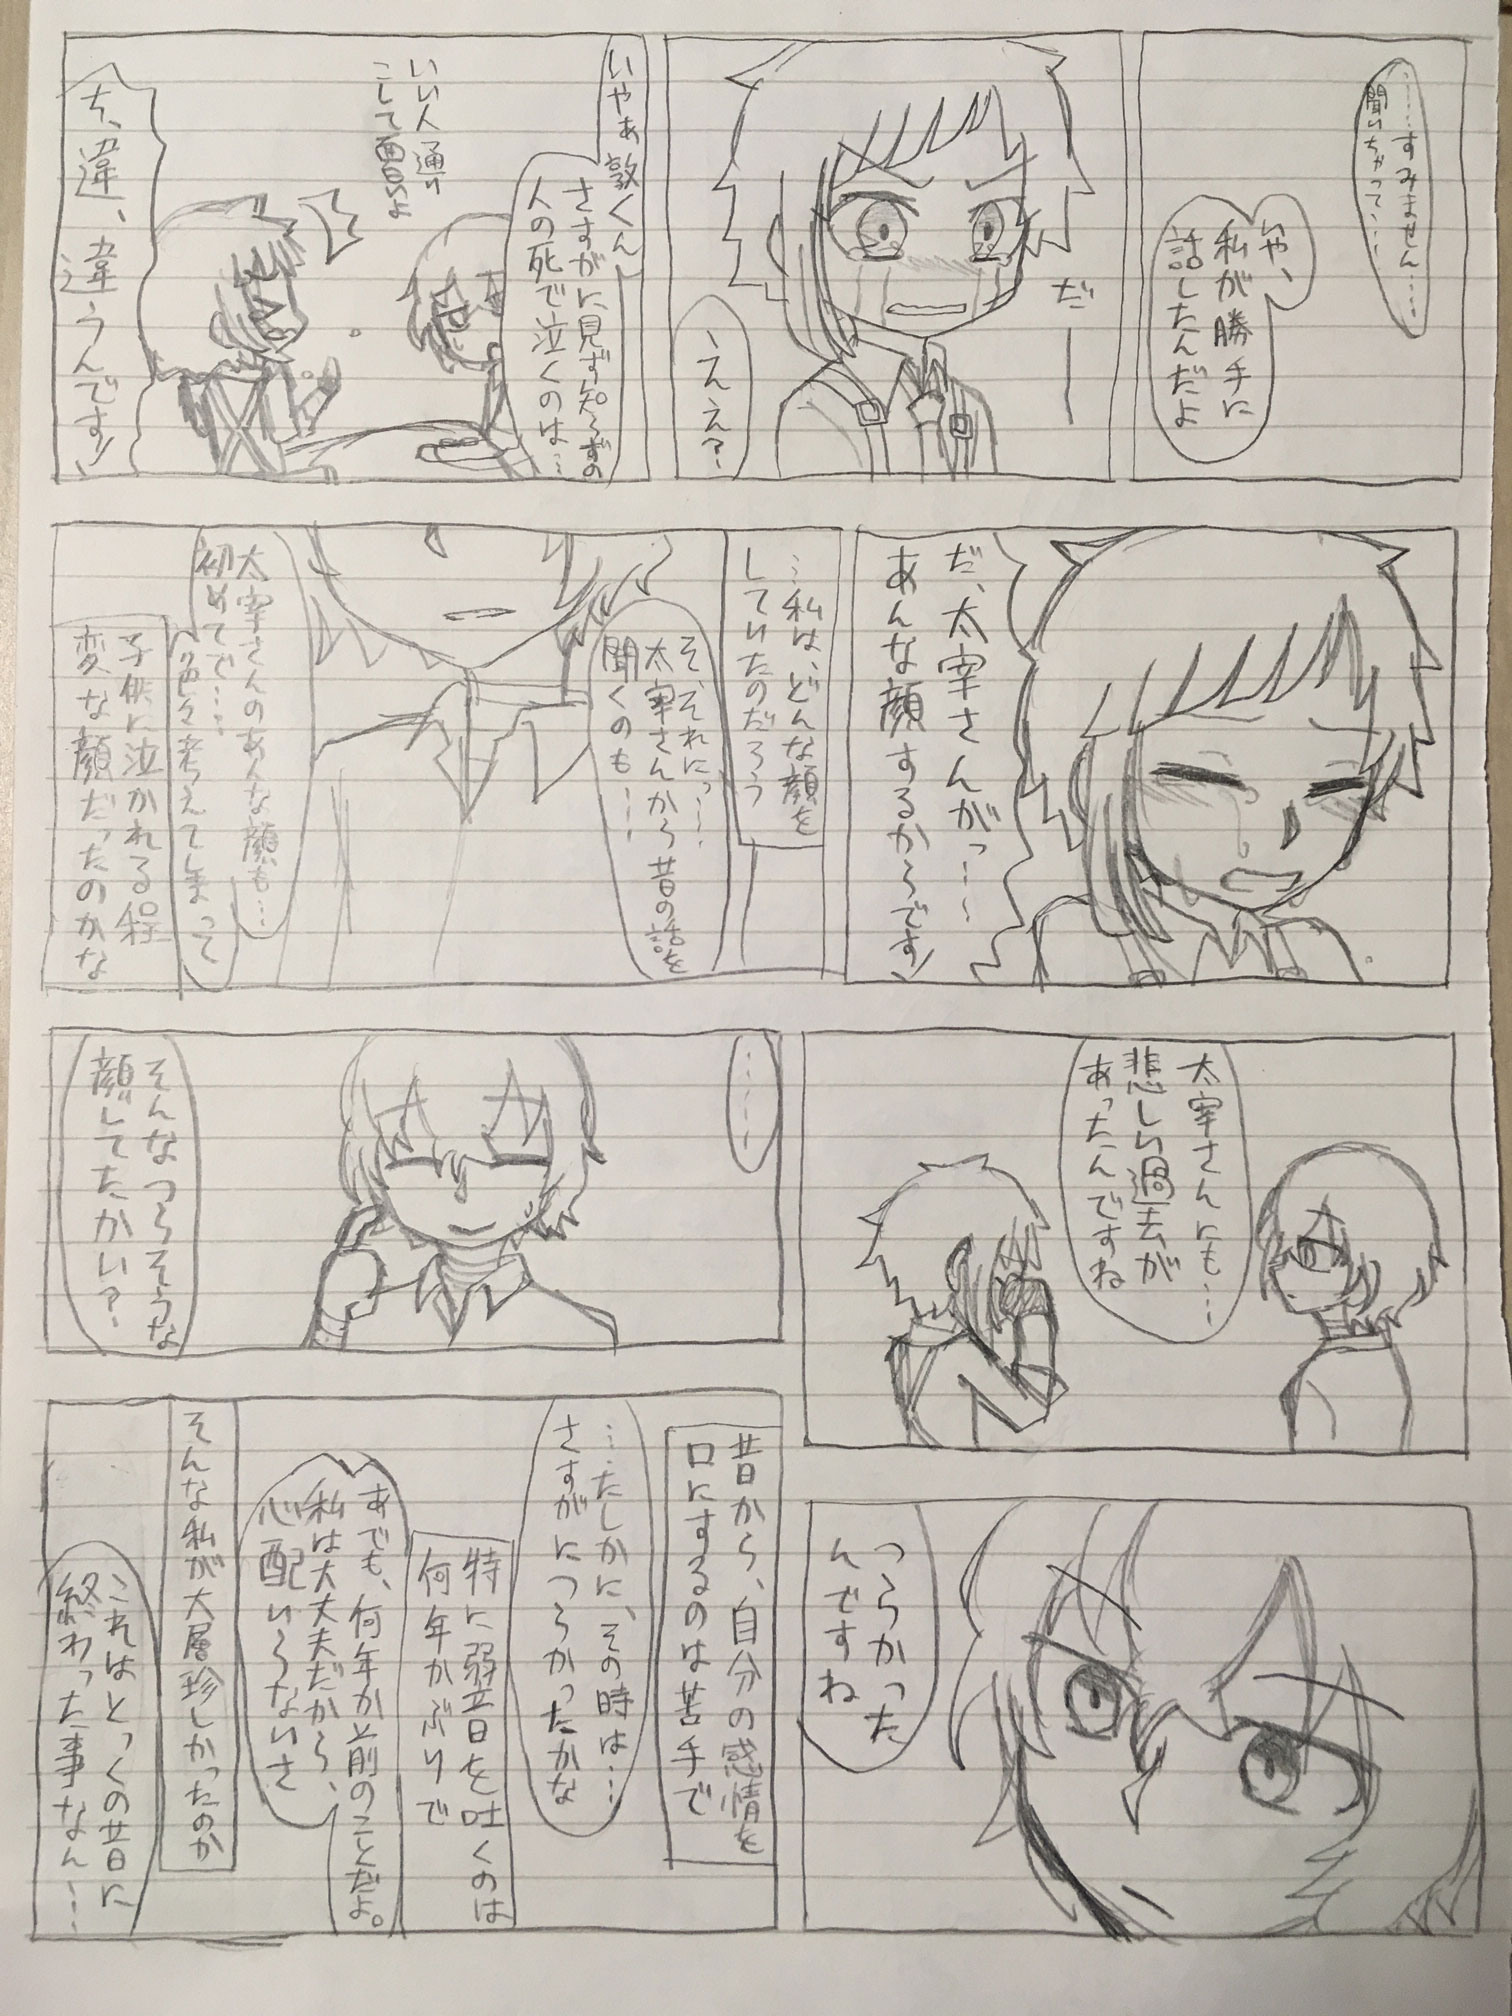 ……すみません……
聞いちゃって……
いや、
私が勝手に
話したんだよ
だ――
ええ?
いやぁ敦くん
さすがに見ず知らずの
人の死で泣くのは…
いい人通り
こして
ち、違、違うんです!
だ、太宰さんがっ……
あんな顔するからです!
…私は、どんな顔を
していたのだろう
そ、それにっ……
太宰さんから昔の話を
聞くのも……
太宰さんのあんな顔も…
初めてで……っ
色々考えてしまって
子供に泣かれる程
変な顔だったのかな
太宰さんにも……
悲しい過去が
あったんですね
……
そんなつらそうな
顔してたかい?
つらかった
んですね
昔から、自分の感情を
口にするのは苦手で
…たしかに、その時は…
さすがにつらかったかな
特に弱音を吐くのは
何年かぶりで
あでも、何年か前のことだよ。
私は大丈夫だから、
心配いらないさ
そんな私が大層珍しかったのか
これはとっくの昔に
終わった事なん……